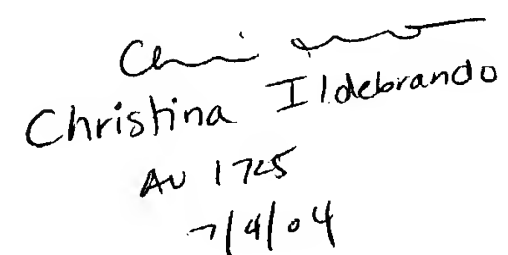 Christina Ildebrando
AU 1725
7/9/04